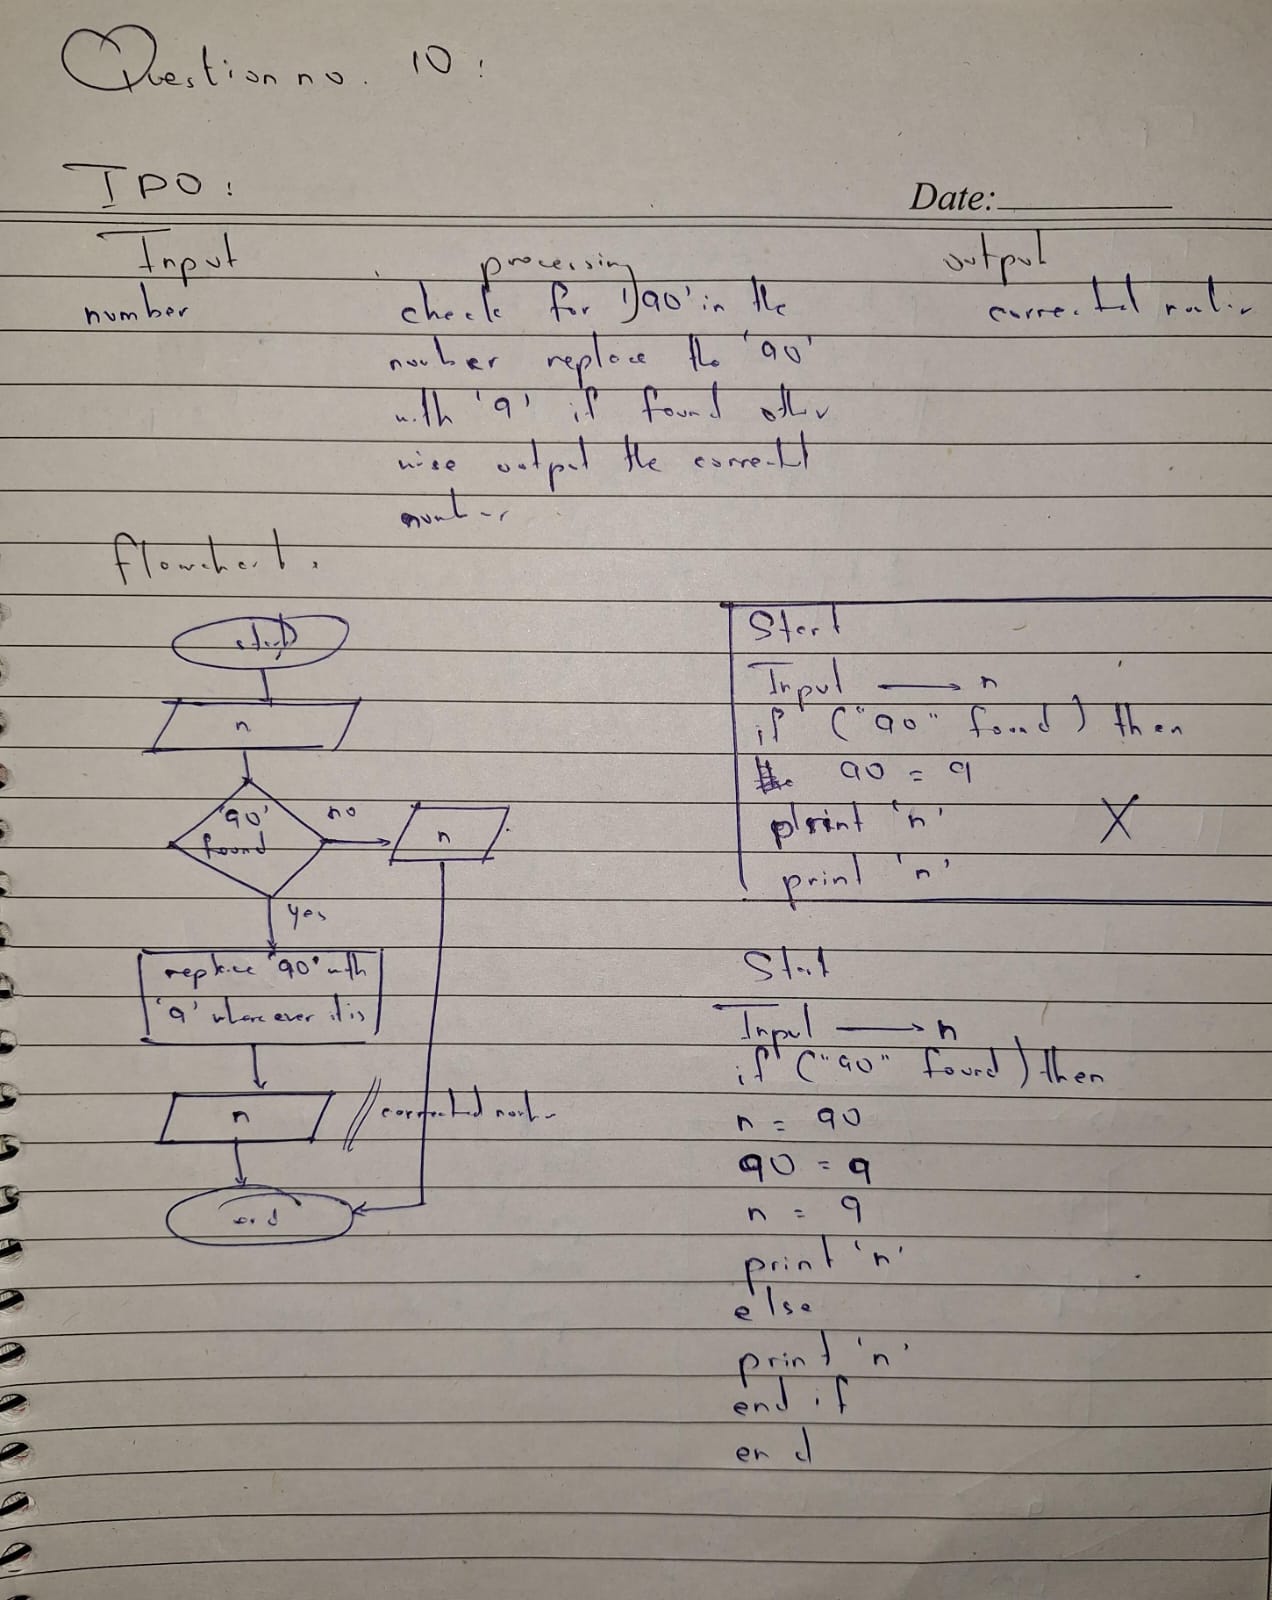 Question no. 10:
IPO:
Date:
Input processing output
number check for '90' in the corrected
number replace the '90'
with '9' if found other
wise output the corrected
number
flowchart.
start
n
'90' found
no
n
yes
replace '90' with
'9' where ever it is
n
// corrected
end
Start
Input → n
if ("90" found) then
90 = 9
print 'n'
X
print 'n'
Start
Input → n
if ("90" found) then
n = 90
90 = 9
n = 9
print 'n'
else
print 'n'
end if
end